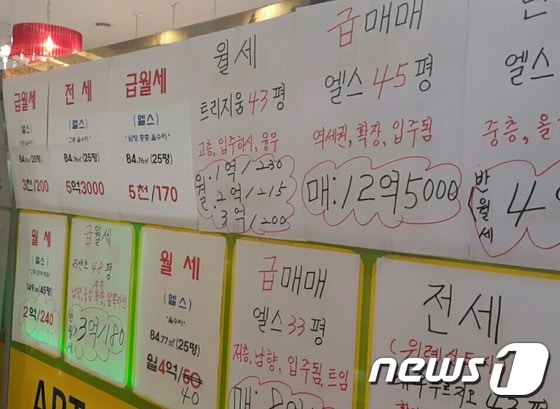 급월세
(엘스)
84.76㎡(25평)
3천/200
전 세
(엘스)
84.76㎡(25평)
5억3000
급월세
(엘스)
84.76㎡(25평)
5천/170
월세
트리지움 43평
고층, 입주하시, 올무
월:1억/230
2억/215
3억/200
급매매
엘스 45평
역세권, 확장, 입주됨
매:12억5000
엘스
중층, 올
반월세
4
월 세
(엘스)
149㎡(45평)
2억/240
급월세
48평
반월세
3억/80
월 세
(엘스)
84.77㎡(25평)
월4억/50
40
급매매
엘스 33평
저층, 남향, 입주됨, 트임
매:
전세
news1
APT